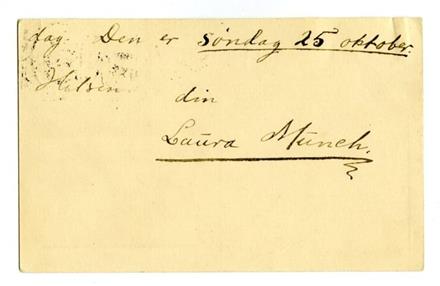 dag. Den er Søndag 25 oktober.
Hilsen
din
Laura Munch.